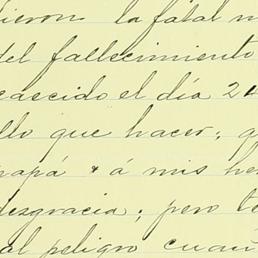 dieron la fatal n
del fallecimiento
caecido el día 24
llo que hacer; q
papá y á mis her
desgracia; pero te
al peligro cuan